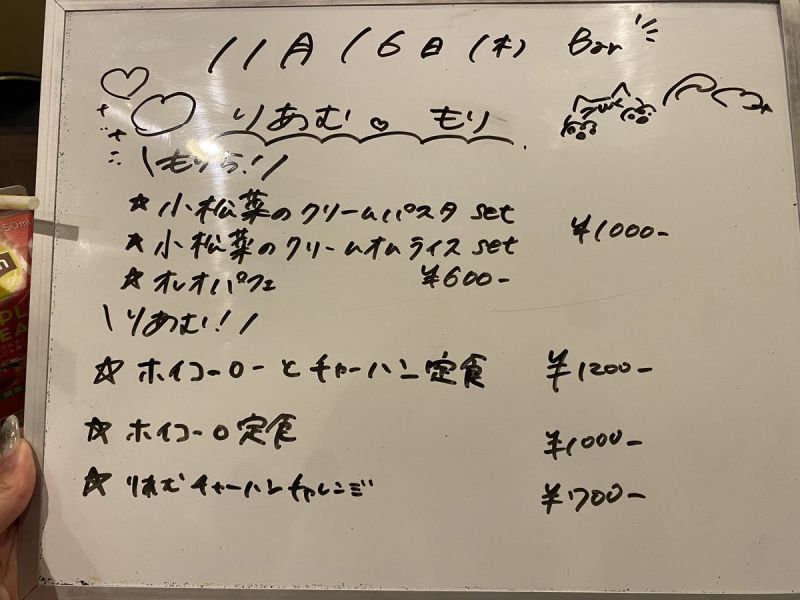 11月16日(木) Bar
りあむ♡ もり
\もりら!/
☆小松菜のクリームパスタ set
¥1000-
☆小松菜のクリームオムライス set
☆オレオパフェ ¥600-
\りあむ!/
☆ホイコーローとチャーハン定食 ¥1200-
☆ホイコーロ定食 ¥1000-
☆りあむチャーハンチャレンジ ¥1700-
50ml